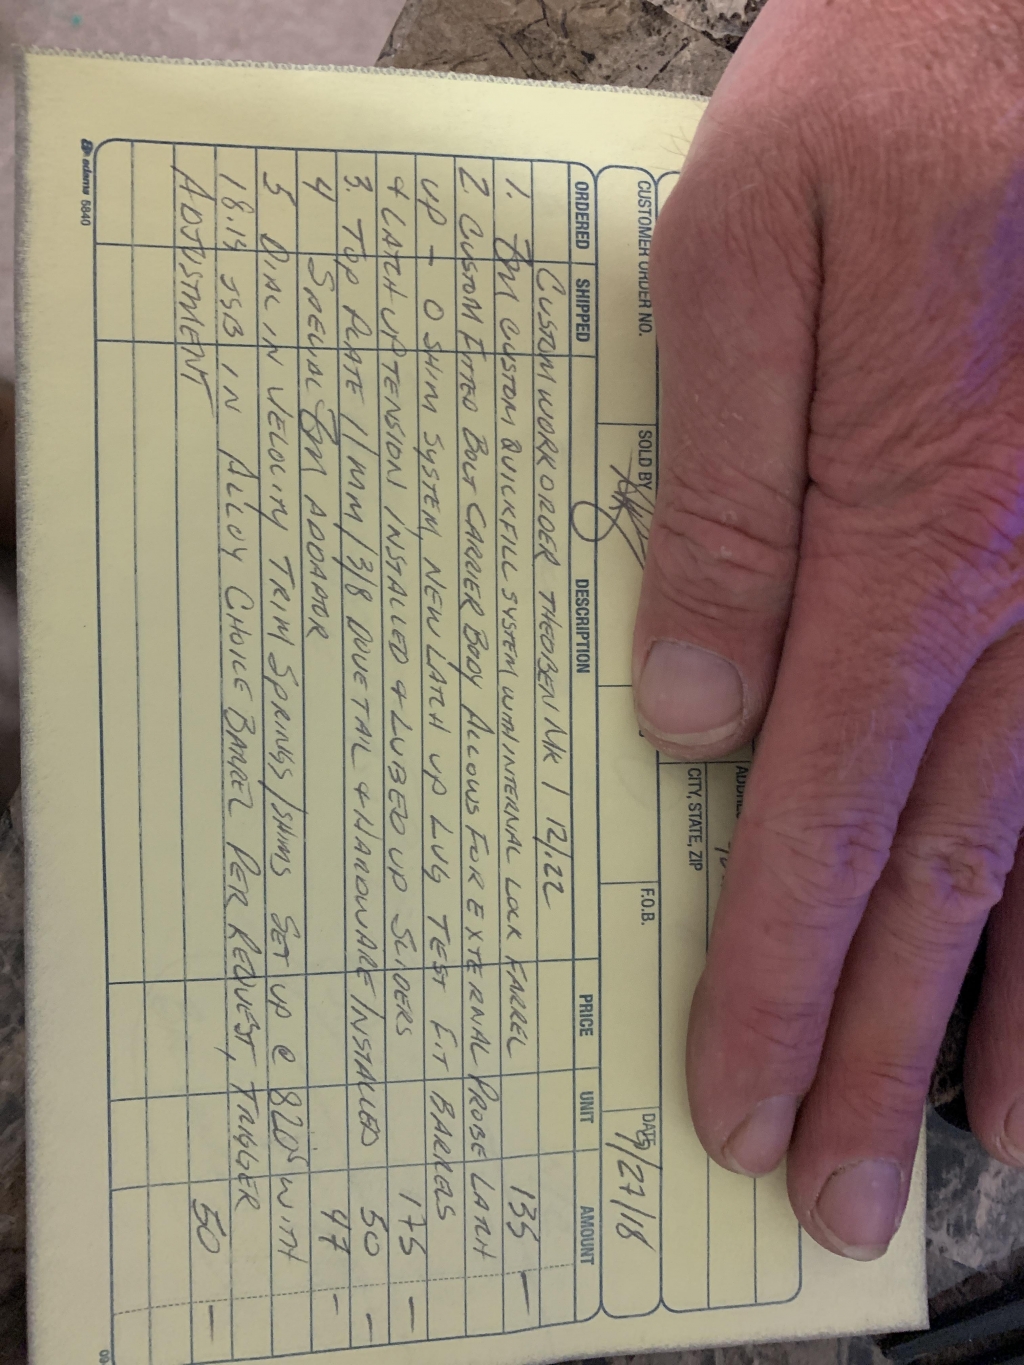 CUSTOMER ORDER NO.
SOLD BY
F.O.B.
DATE 9/27/18
CITY, STATE, ZIP
ORDERED SHIPPED DESCRIPTION PRICE UNIT AMOUNT
CUSTOM WORK ORDER THEOBEN MK 1 12/.22
1. CUSTOM QUICKFILL SYSTEM WITH INTERNAL LOCK FARREL 135 —
2. CUSTOM FITTED BOLT CARRIER BODY ALLOWS FOR EXTERNAL PROBE LATCH
UP - O SHIM SYSTEM, NEW LATCH UP LUG TEST FIT BARRELS
& LATCH UP TENSION INSTALLED & LUBED UP SLIDERS 175 —
3. TOP PLATE 11MM/3/8 DOVETAIL & HARDWARE INSTALLED 50 —
4 SPECIAL ADDAPTOR 47 —
5 DIAL IN VELOCITY TRIM SPRINGS/SHIMS SET UP @ 820'S WITH
18.13 JSB IN ALLOY CHOICE BARREL PER REQUEST, TRIGGER
ADJUSTMENT 50 —
adams 5840